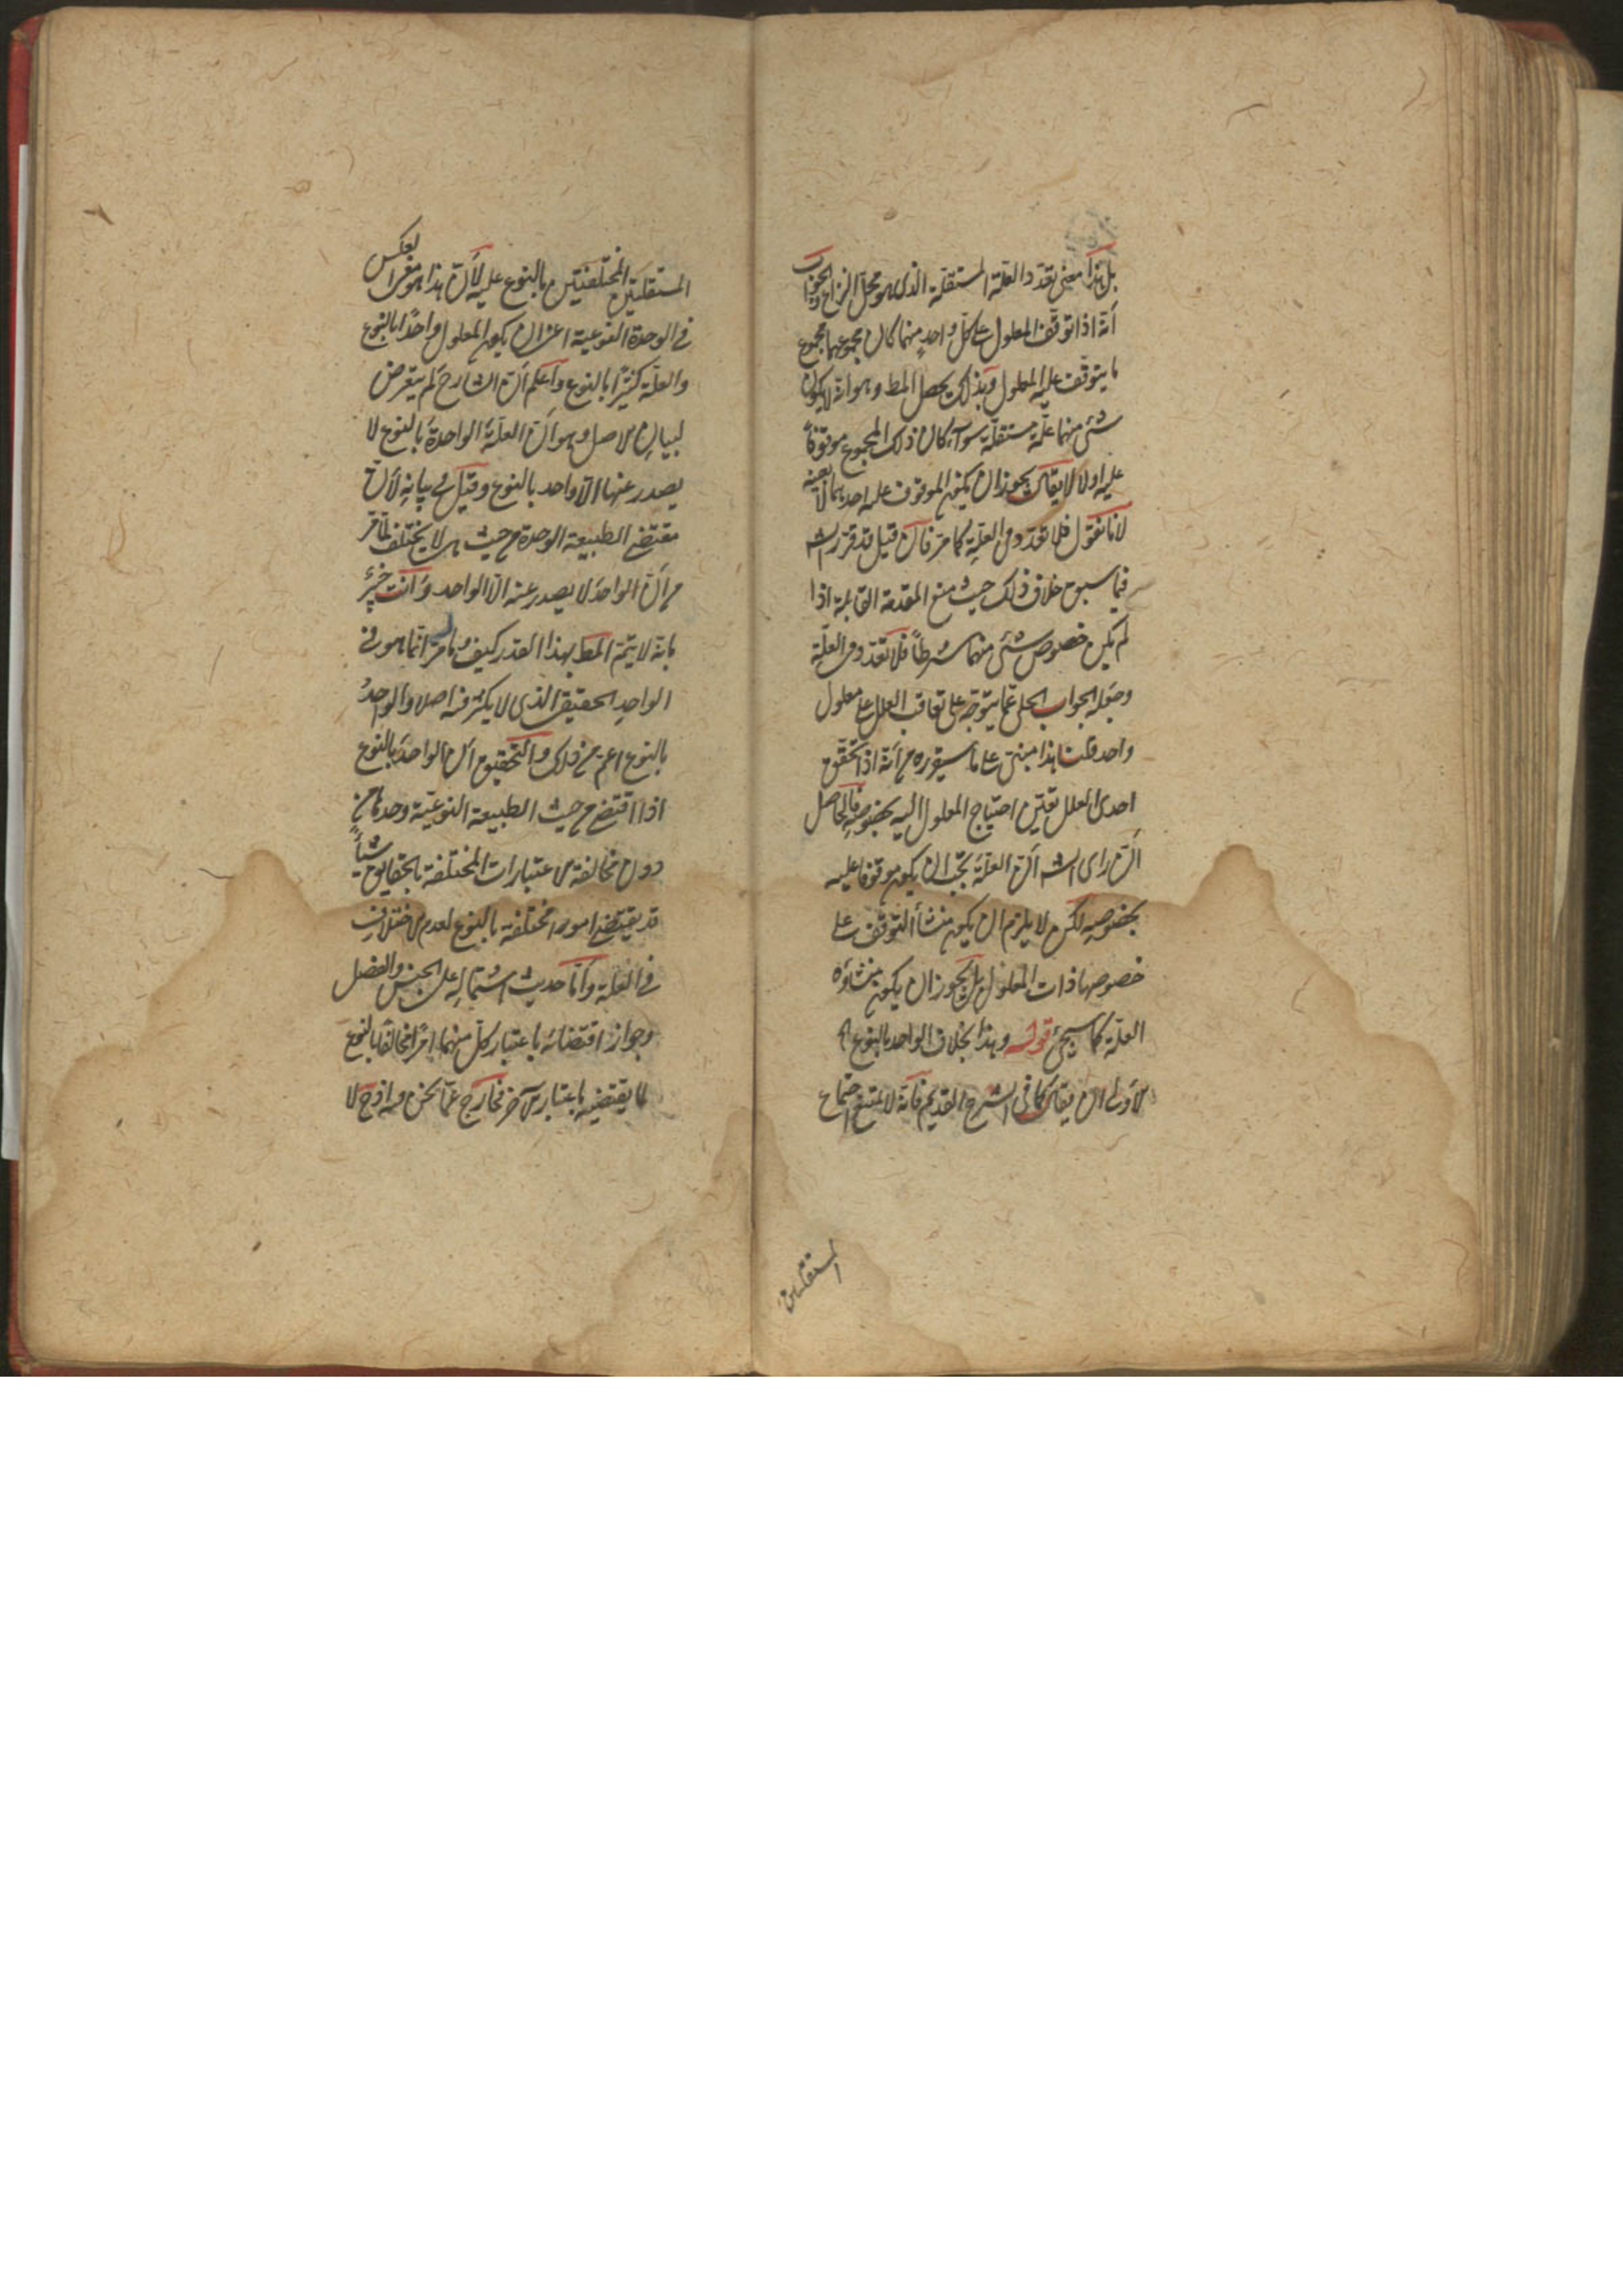 بل هذا معنى تعدد العلة المستقلة الذى هو محل النزاع والجواب
أنه اذا توقف المعلول على كل واحد منهما كان مجموعهما مجموع
ما يتوقف عليه المعلول وبذلك يحصل المط وهو انه لا يكون
شئ منهما علة مستقلة سواء كان ذلك المجموع موقوفا
عليه اولا لا يقال يجوز ان يكون الموقوف عليه احدهما لا بعينه
لانا نقول فلا تعدد فى العلة كما مر فان قيل قد قرر الش
فيما سبق خلاف ذلك حيث منع المقدمة القايلة اذا
لم يكن خصوص شئ منهما شرطا فلا تعدد فى العلة
وجعله الجواب الحلى عما يتوجه على تعاقب العلل على معلول
واحد قلت هذا مبنى على ما سيقرره من أنه اذا تحقق
احدى العلل تعين احتياج المعلول اليه بخصوصه فالحاصل
ان راى الش ان العلة يجب ان يكون موقوفا عليه
بخصوصه لكن لا يلزم ان يكون منشأ التوقف على
خصوصها ذات المعلول بل يجوز ان يكون منشاؤه
العلة كما سيجئ قوله وهذا بخلاف الواحد بالنوع اه
الاولى ان يقال كما فى الشرح القديم فانه لا يمتنع اجتماع
المستقلتين
المستقلتين المختلفتين بالنوع عليه لأن هذا هو معنى العكس
فى الوحدة النوعية اعنى ان يكون المعلول واحدا بالنوع
والعلة كثيرا بالنوع واعلم ان الشارح لم يتعرض
لبيان الاصل وهو أن العلة الواحدة بالنوع لا
يصدر عنها الا واحد بالنوع وقيل فى بيانه لأن
مقتضى الطبيعة الواحدة من حيث هى لا يختلف لما مر
من أن الواحد لا يصدر عنه الا الواحد وانت خبير
بانه لا يتم المط بهذا القدر كيف وما مر انما هو فى
الواحد الحقيقى الذى لا يكثر فيه اصلا والواحد
بالنوع اعم من ذلك والتحقيق ان الواحد بالنوع
اذا اقتضى من حيث الطبيعة النوعية وحدها من
دون مخالفة الاعتبارات المختلفة بالحقايق شيأ
قد يقتضى امورا مختلفة بالنوع لعدم الاختلاف
فى العلة واما حديث اشتماله على الجنس والفصل
وجواز اقتضائه باعتبار كل منهما امرا مخالفا بالنوع
لما يقتضيه باعتبار الآخر فخارج عما نحن فيه اذ ح لا